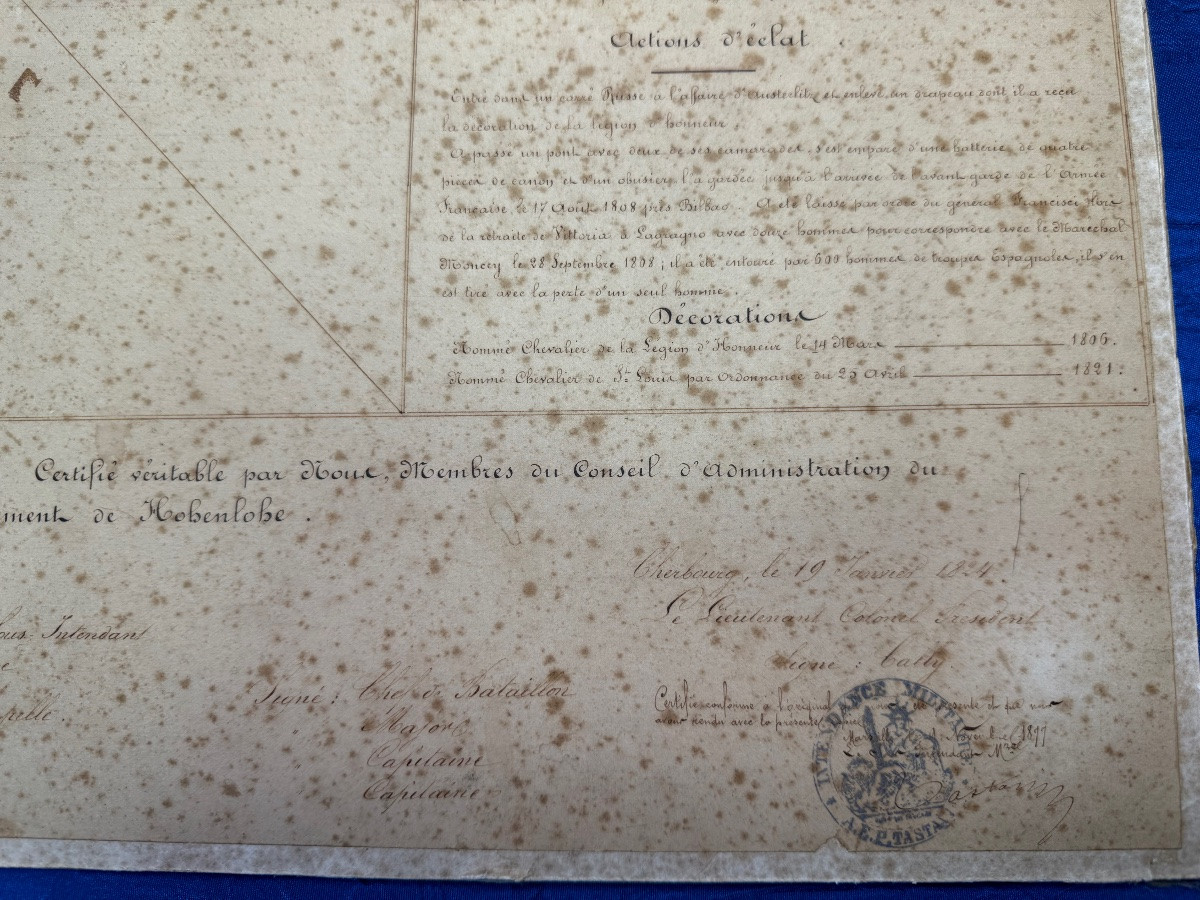 Actions d'éclat.
Entré dans un carré Russe à l'affaire d'Austerlitz et enlevé un drapeau dont il a reçu
la décoration de la légion d'honneur.
A passé un pont avec deux de ses camarades, s'est emparé d'une batterie de quatre
pièces de canon et d'un obusier, l'a gardée jusqu'à l'arrivée de l'avant garde de l'Armée
Française, le 17 Août 1808 près Bilbao. A été laissé par ordre du général Francisci lors
de la retraite de Vittoria à Lagragno avec douze hommes pour correspondre avec le Maréchal
Moncey le 28 Septembre 1808; il a été entouré par 600 hommes de troupes Espagnoles, il s'en
est tiré avec la perte d'un seul homme.
Décorations
Nommé Chevalier de la Légion d'Honneur le 14 Mars 1806.
Nommé Chevalier de St. Louis par ordonnance du 25 Avril 1821.
Certifié véritable par Nous, Membres du Conseil d'Administration du
ment de Hohenlohe.
Cherbourg, le 19 Janvier 1824.
Le Lieutenant Colonel Président
Signé:
ous Intendant
Signé: Chef de Bataillon
Major
Capitaine
Capitaine
Certifié conforme à l'original présenté et que nous
avons rendu avec la présente
Novembre 1877
INTENDANCE MILITAIRE
A.E.P. TASTA